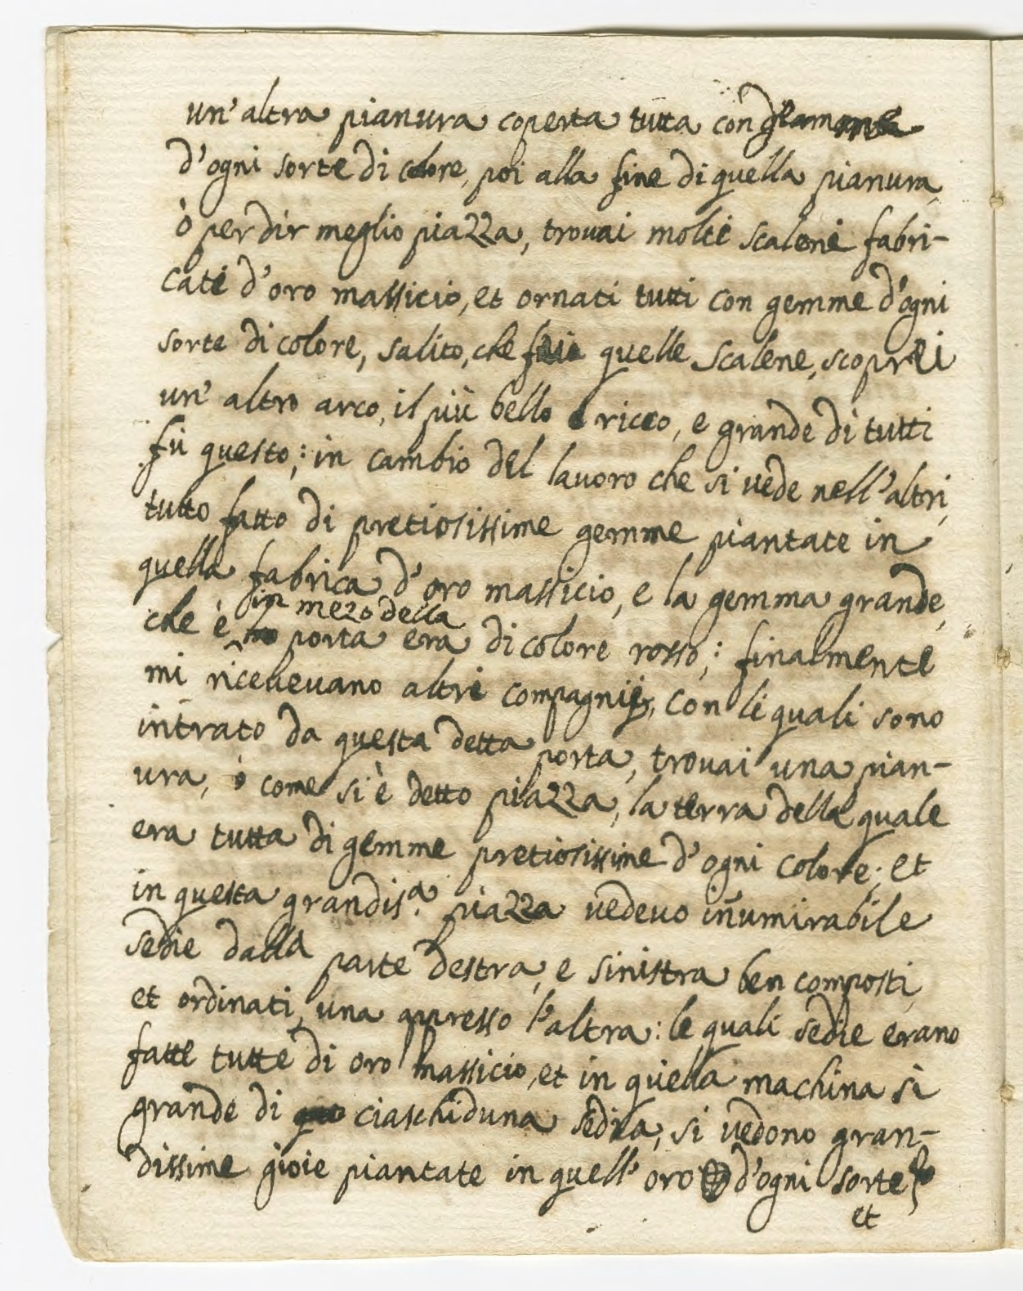 un' altra pianura coperta tutta con
d'ogni sorte di colore, poi alla fine di quella pianura,
ò per dir meglio piazza, trovai molti scaleni fabri-
cati d'oro massicio, et ornati tutti con gemme d'ogni
sorte di colore, salito, che quelle scalene, scoprei
un' altro arco, il più bello e ricco, e grande di tutti
fù questo; in cambio del lavoro che si vede nell'altri,
tutto fatto di pretiosissime gemme piantate in
quella fabrica d'oro massicio, e la gemma grande,
in mezo della
che è porta era di colore rosso; finalmente
mi ricevevano altri compagni, con li quali sono
intrato da questa detta porta, trovai una pian-
ura, ò come si è detto piazza, la terra della quale
era tutta di gemme pretiosissime d'ogni colore; et
in questa grandis.a piazza vedevo inumirabile
sedie dalla parte destra, e sinistra ben composti,
et ordinati, una appresso l'altra: le quali sedie erano
fatte tutte di oro massicio, et in quella machina sì
grande di ciaschiduna sedia, si vedono gran-
dissime gioie piantate in quell' oro d'ogni sorte
et